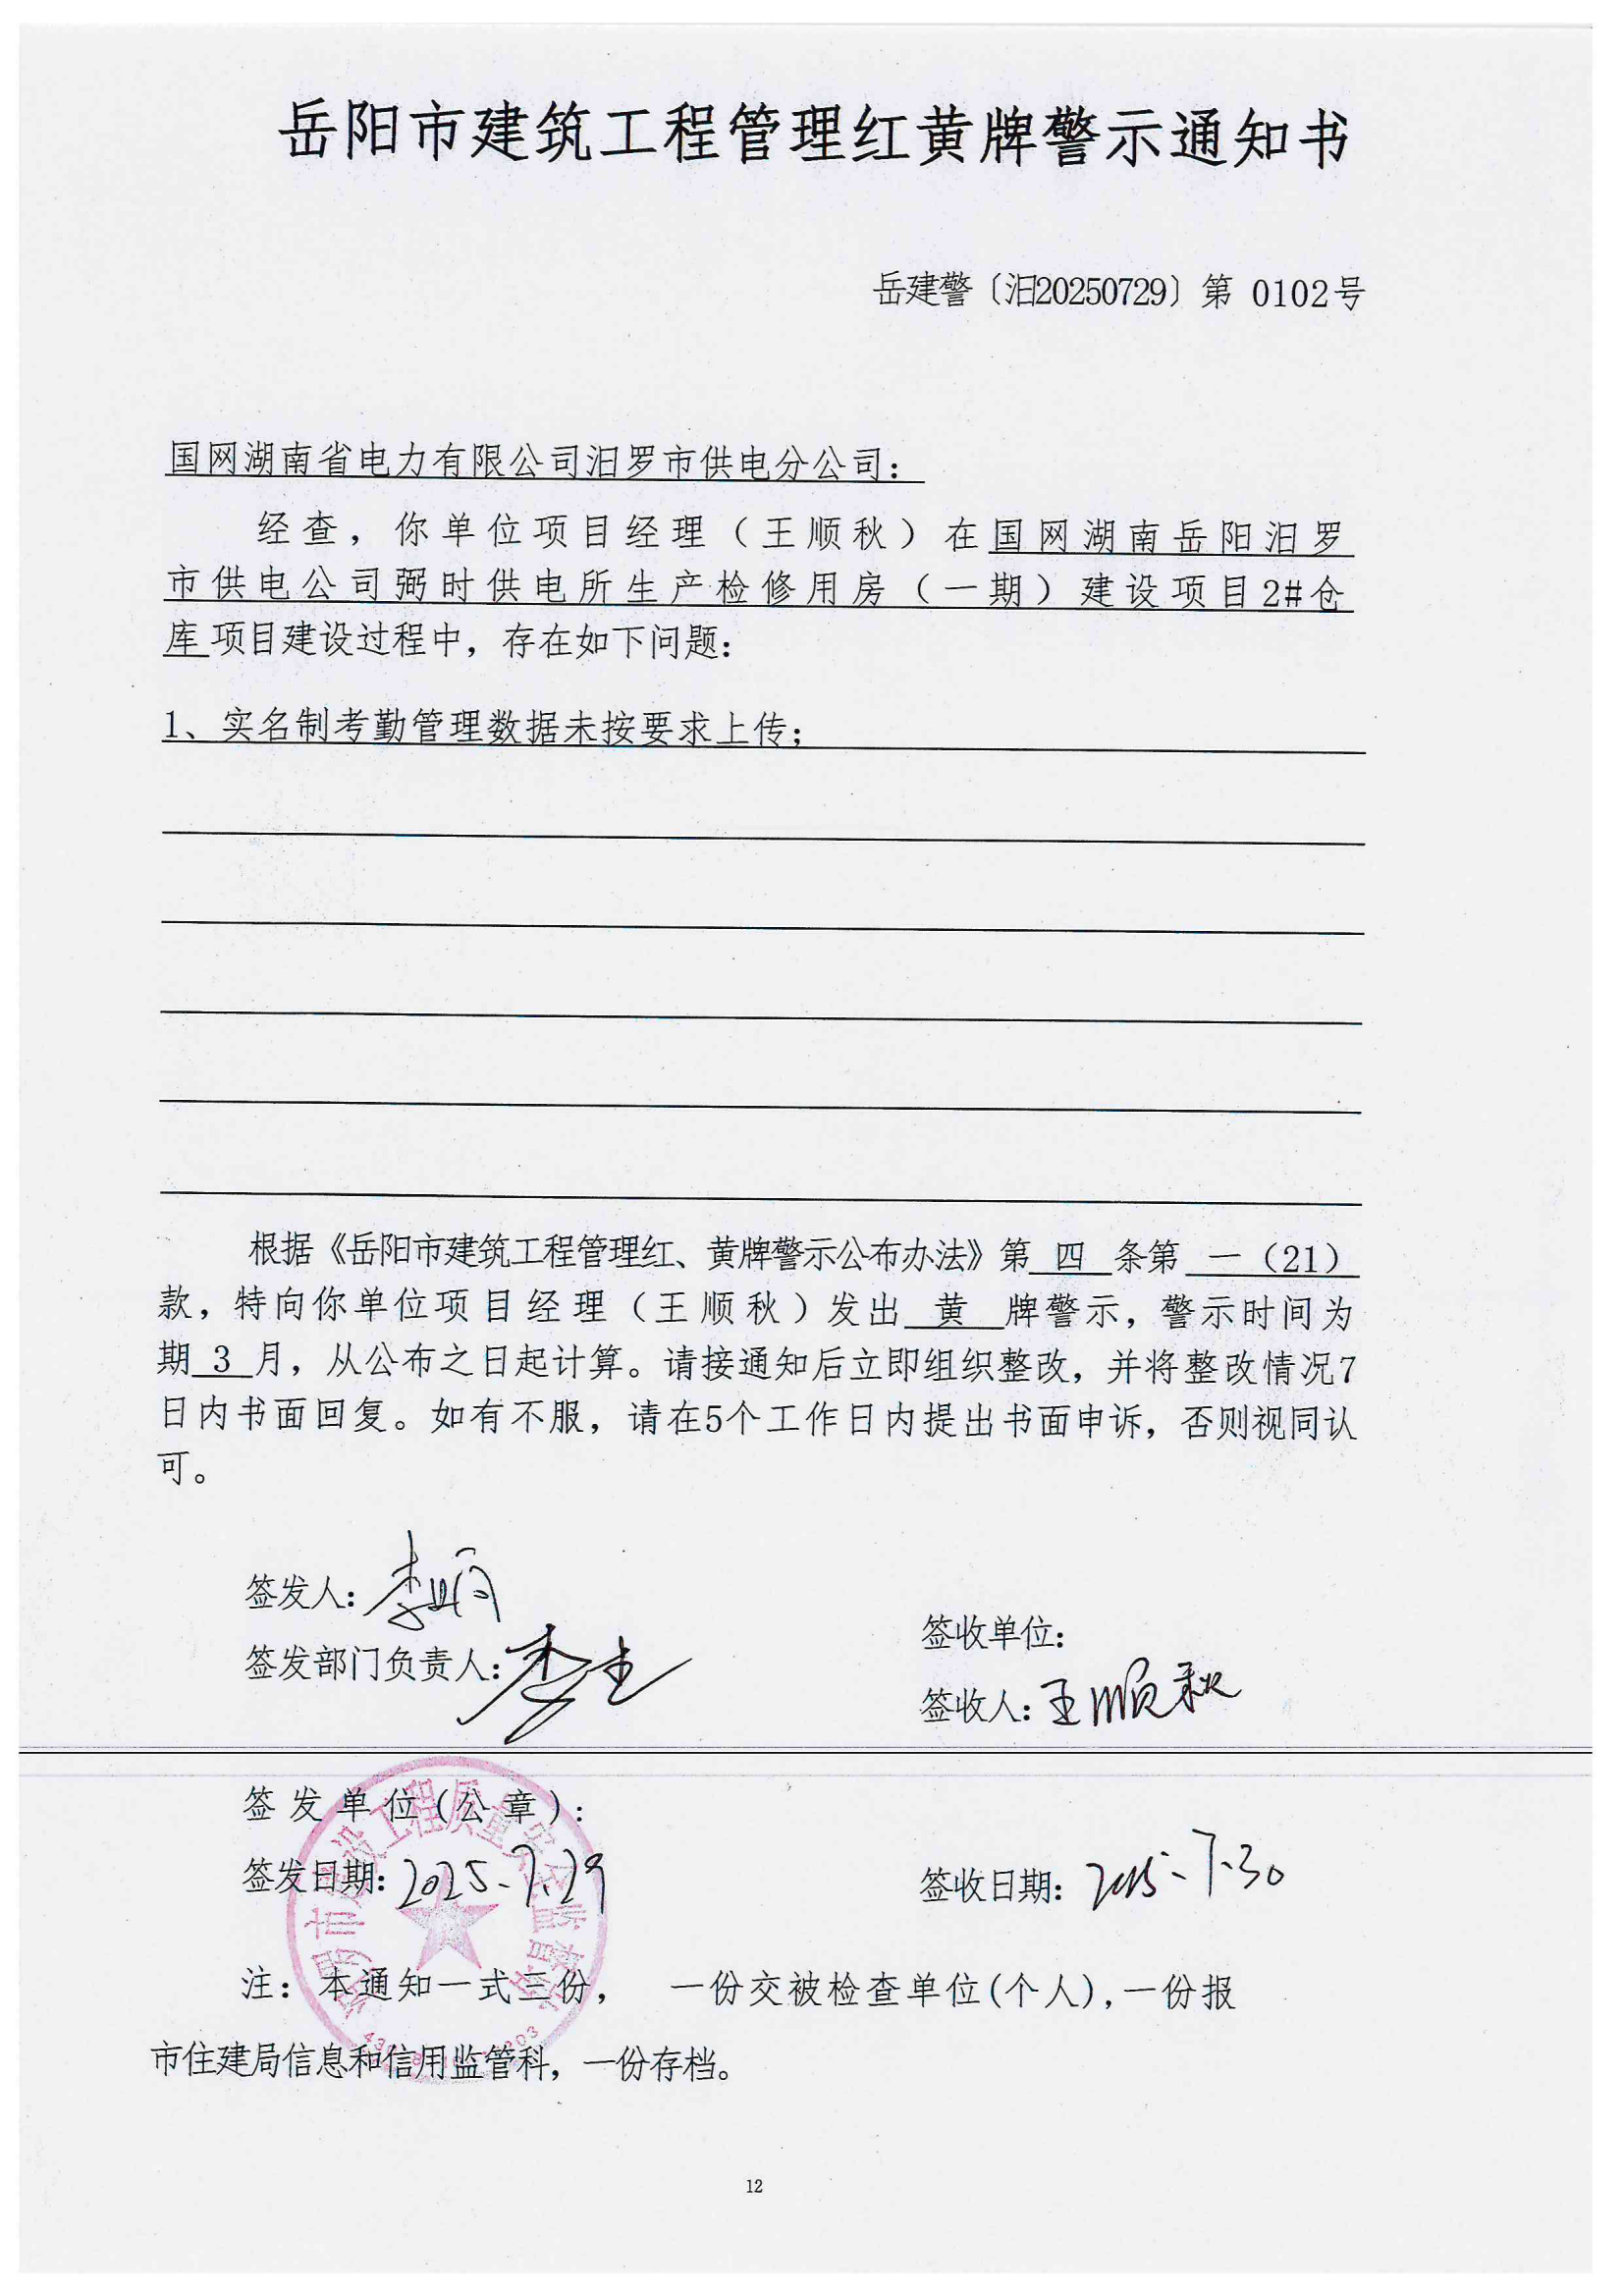 岳阳市建筑工程管理红黄牌警示通知书
岳建警〔汨20250729〕第 0102号
国网湖南省电力有限公司汨罗市供电分公司：
经查，你单位项目经理（王顺秋）在国网湖南岳阳汨罗
市供电公司弼时供电所生产检修用房（一期）建设项目2#仓
库项目建设过程中，存在如下问题：
1、实名制考勤管理数据未按要求上传；
根据《岳阳市建筑工程管理红、黄牌警示公布办法》第 四 条第 一（21）
款，特向你单位项目经理（王顺秋）发出 黄 牌警示，警示时间为
期 3 月，从公布之日起计算。请接通知后立即组织整改，并将整改情况7
日内书面回复。如有不服，请在5个工作日内提出书面申诉，否则视同认
可。
签发人：李
签发部门负责人：李
签收单位：
签收人：王顺秋
签发单位(公章)：
签发日期：2025.7.29
签收日期：2025.7.30
市建设工程质量安全监督站
注：本通知一式三份， 一份交被检查单位(个人)，一份报
市住建局信息和信用监管科，一份存档。
12